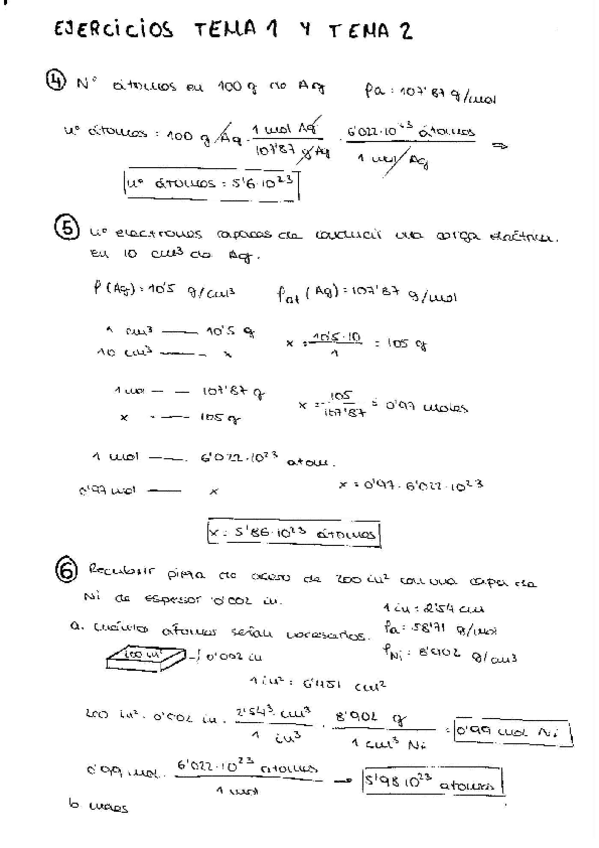 EJERCICIOS TEMA 1 Y TEMA 2
④ Nº átomos en 100 g de Ag Pa: 107'87 g/mol
nº átomos = 100 g Ag · 1 mol Ag / 107'87 g Ag · 6'022·10²³ átomos / 1 mol Ag ⇒
nº átomos = 5'6·10²³
⑤ nº electrones capaces de conducir una carga eléctrica.
En 10 cm³ de Ag.
ρ(Ag) = 10'5 g/cm³ Pat (Ag) = 107'87 g/mol
1 cm³ —— 10'5 g
10 cm³ —— x
x = 10'5·10 / 1 = 105 g
1 mol — — 107'87 g
x — 105 g
x = 105 / 107'87 = 0'97 moles
1 mol —— 6'022·10²³ atom.
0'97 mol —— x
x = 0'97 · 6'022·10²³
x = 5'86·10²³ átomos
⑥ Recubrir pieza de acero de 200 in² con una capa de
Ni de espesor 0'002 in.
1 in = 2'54 cm
a. cuántos átomos serían necesarios.
Pa = 58'71 g/mol
ρNi = 8'902 g/cm³
200 in² 0'002 in
1 in² = 6'451 cm²
200 in² · 0'002 in · 2'54³ cm³ / 1 in³ · 8'902 g / 1 cm³ Ni = 0'99 mol Ni
0'99 mol · 6'022·10²³ átomos / 1 mol → 5'98·10²³ átomos
b